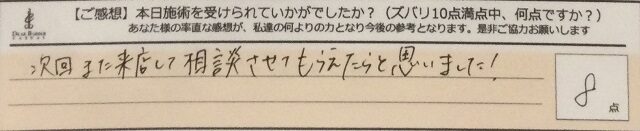 【ご感想】本日施術を受けられていかがでしたか?(ズバリ10点満点中、何点ですか?)
あなた様の率直な感想が、私達の何よりの力となり今後の参考となります。是非ご協力お願いします
次回また来店して相談させてもらえたらと思いました!
8
点